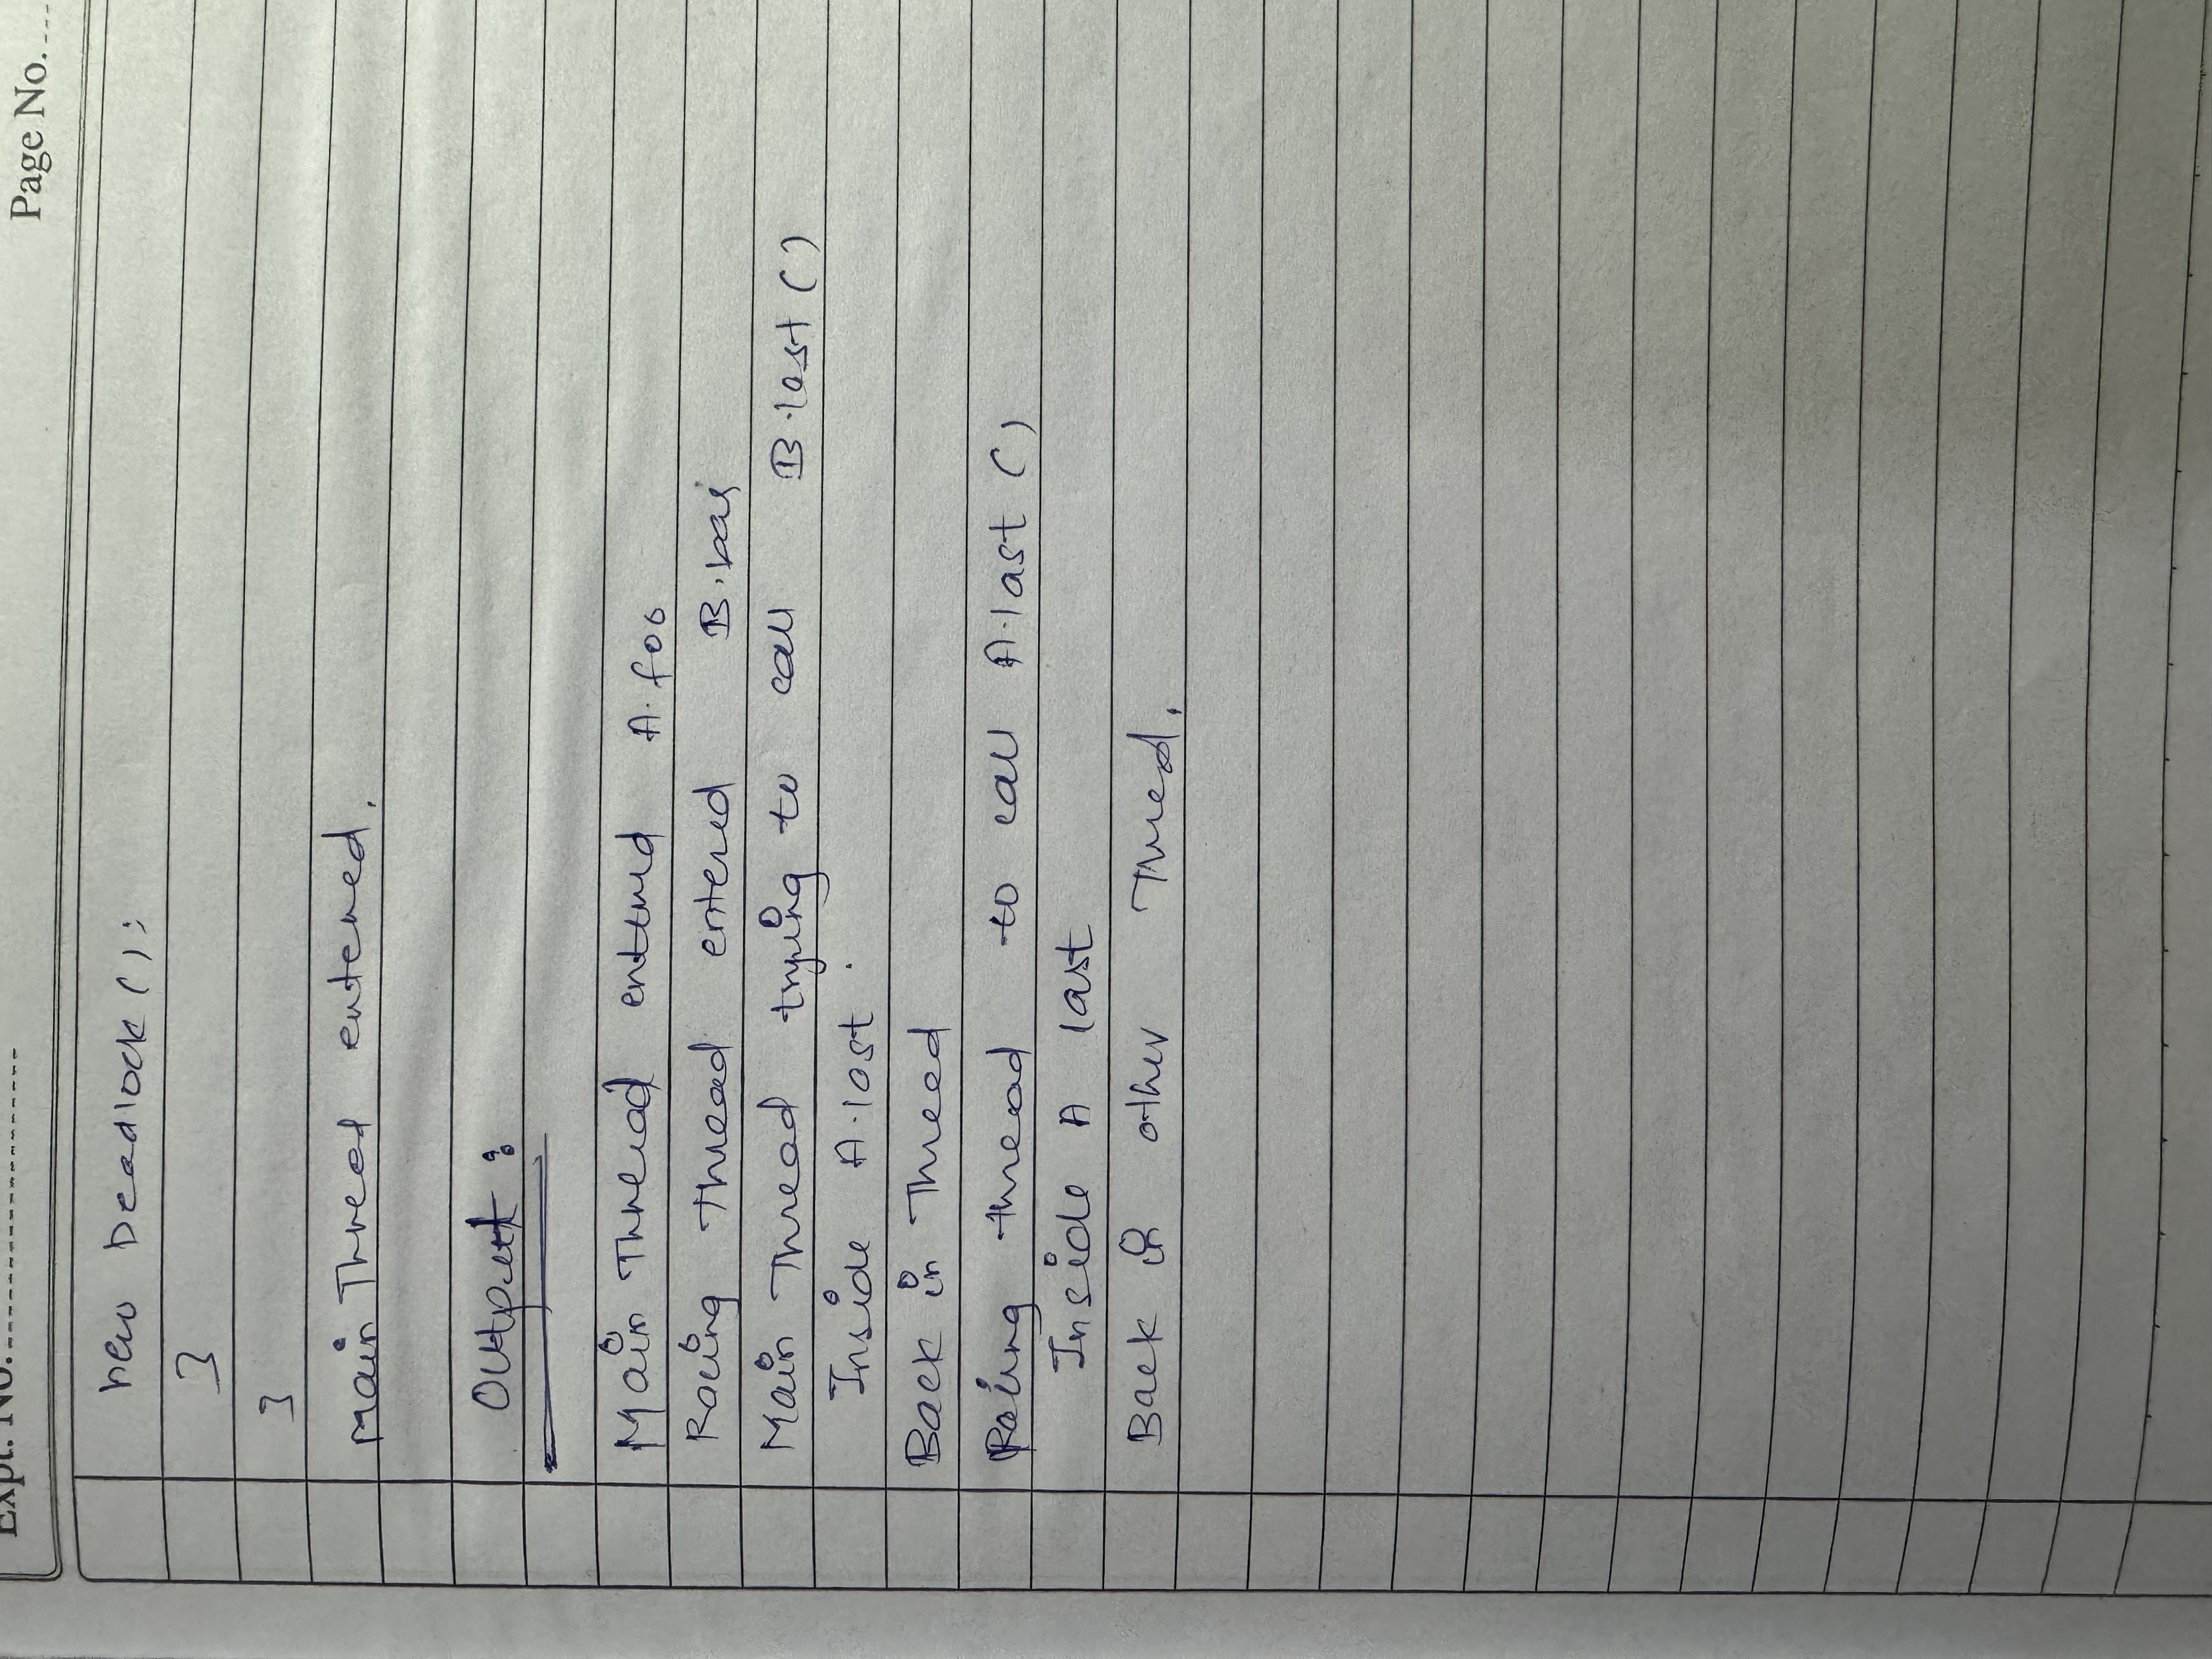 Expt. No.
Page No.
new Deadlock ();
}
}
Main Thread entered.
Output :
Main Thread entered A.foo
Racing thread entered B.bar
Main Thread trying to call B.last ()
Inside A.last
Back in Thread
Racing thread to call A.last ()
Inside A last
Back in other Thread.